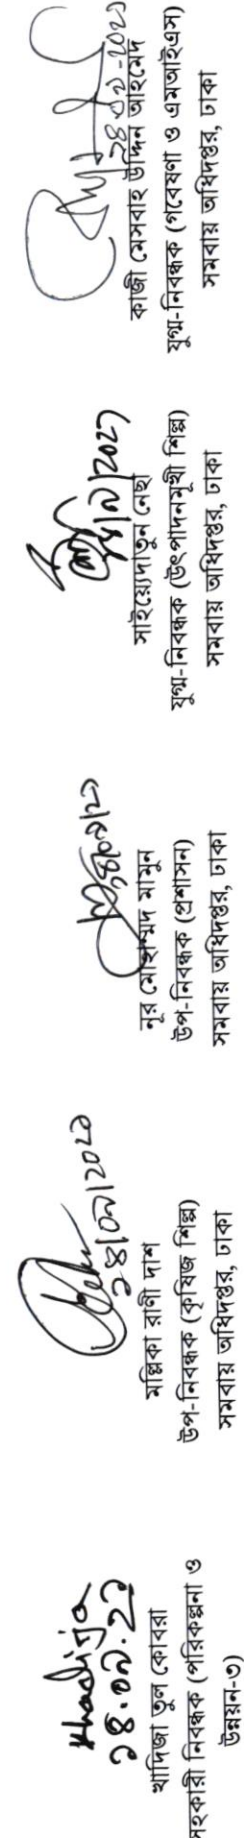 Khadija
১৪.০৯.২১
খাদিজা তুল কোবরা
সহকারী নিবন্ধক (পরিকল্পনা ও
উন্নয়ন-৩)
মল্লিকা রাণী দাশ
উপ-নিবন্ধক (কৃষিজ শিল্প)
সমবায় অধিদপ্তর, ঢাকা
নূর মোহাম্মদ মামুন
উপ-নিবন্ধক (প্রশাসন)
সমবায় অধিদপ্তর, ঢাকা
সাইয়্যেদাতুন নেছা
যুগ্ম-নিবন্ধক (উৎপাদনমুখী শিল্প)
সমবায় অধিদপ্তর, ঢাকা
কাজী মেসবাহ উদ্দিন আহমেদ
যুগ্ম-নিবন্ধক (গবেষণা ও এমআইএস)
সমবায় অধিদপ্তর, ঢাকা